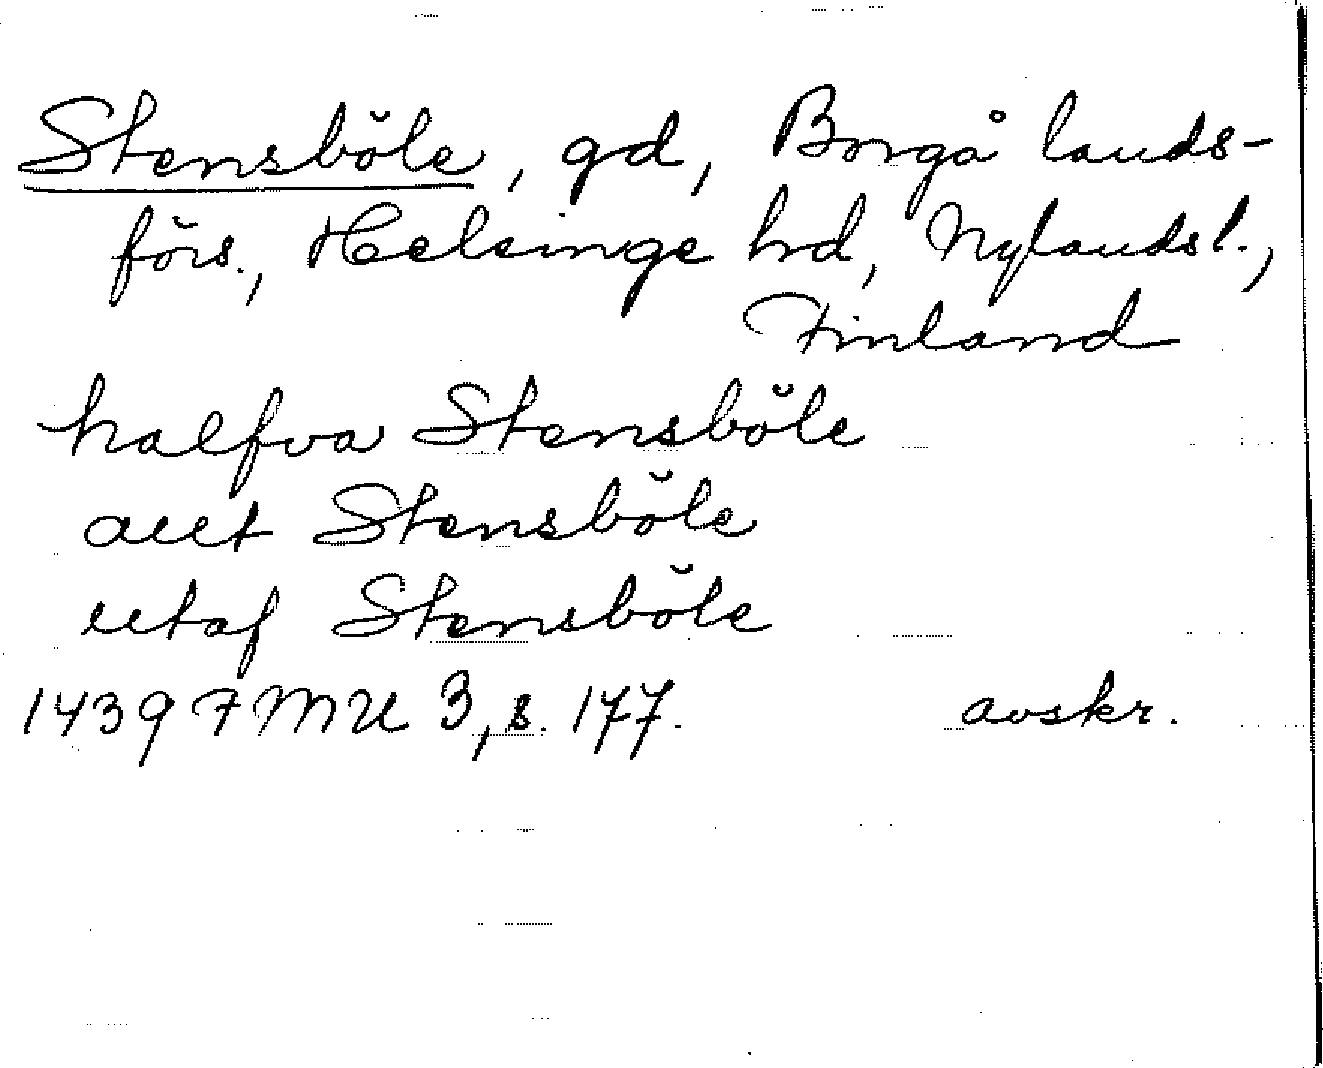 Stensböle, gd, Borgå lands-
förs., Helsinge hd, Nylandsl.,
Finland
halfva Stensböle
allt Stensböle
utaf Stensböle
1439 FMU 3, s. 177. avskr.